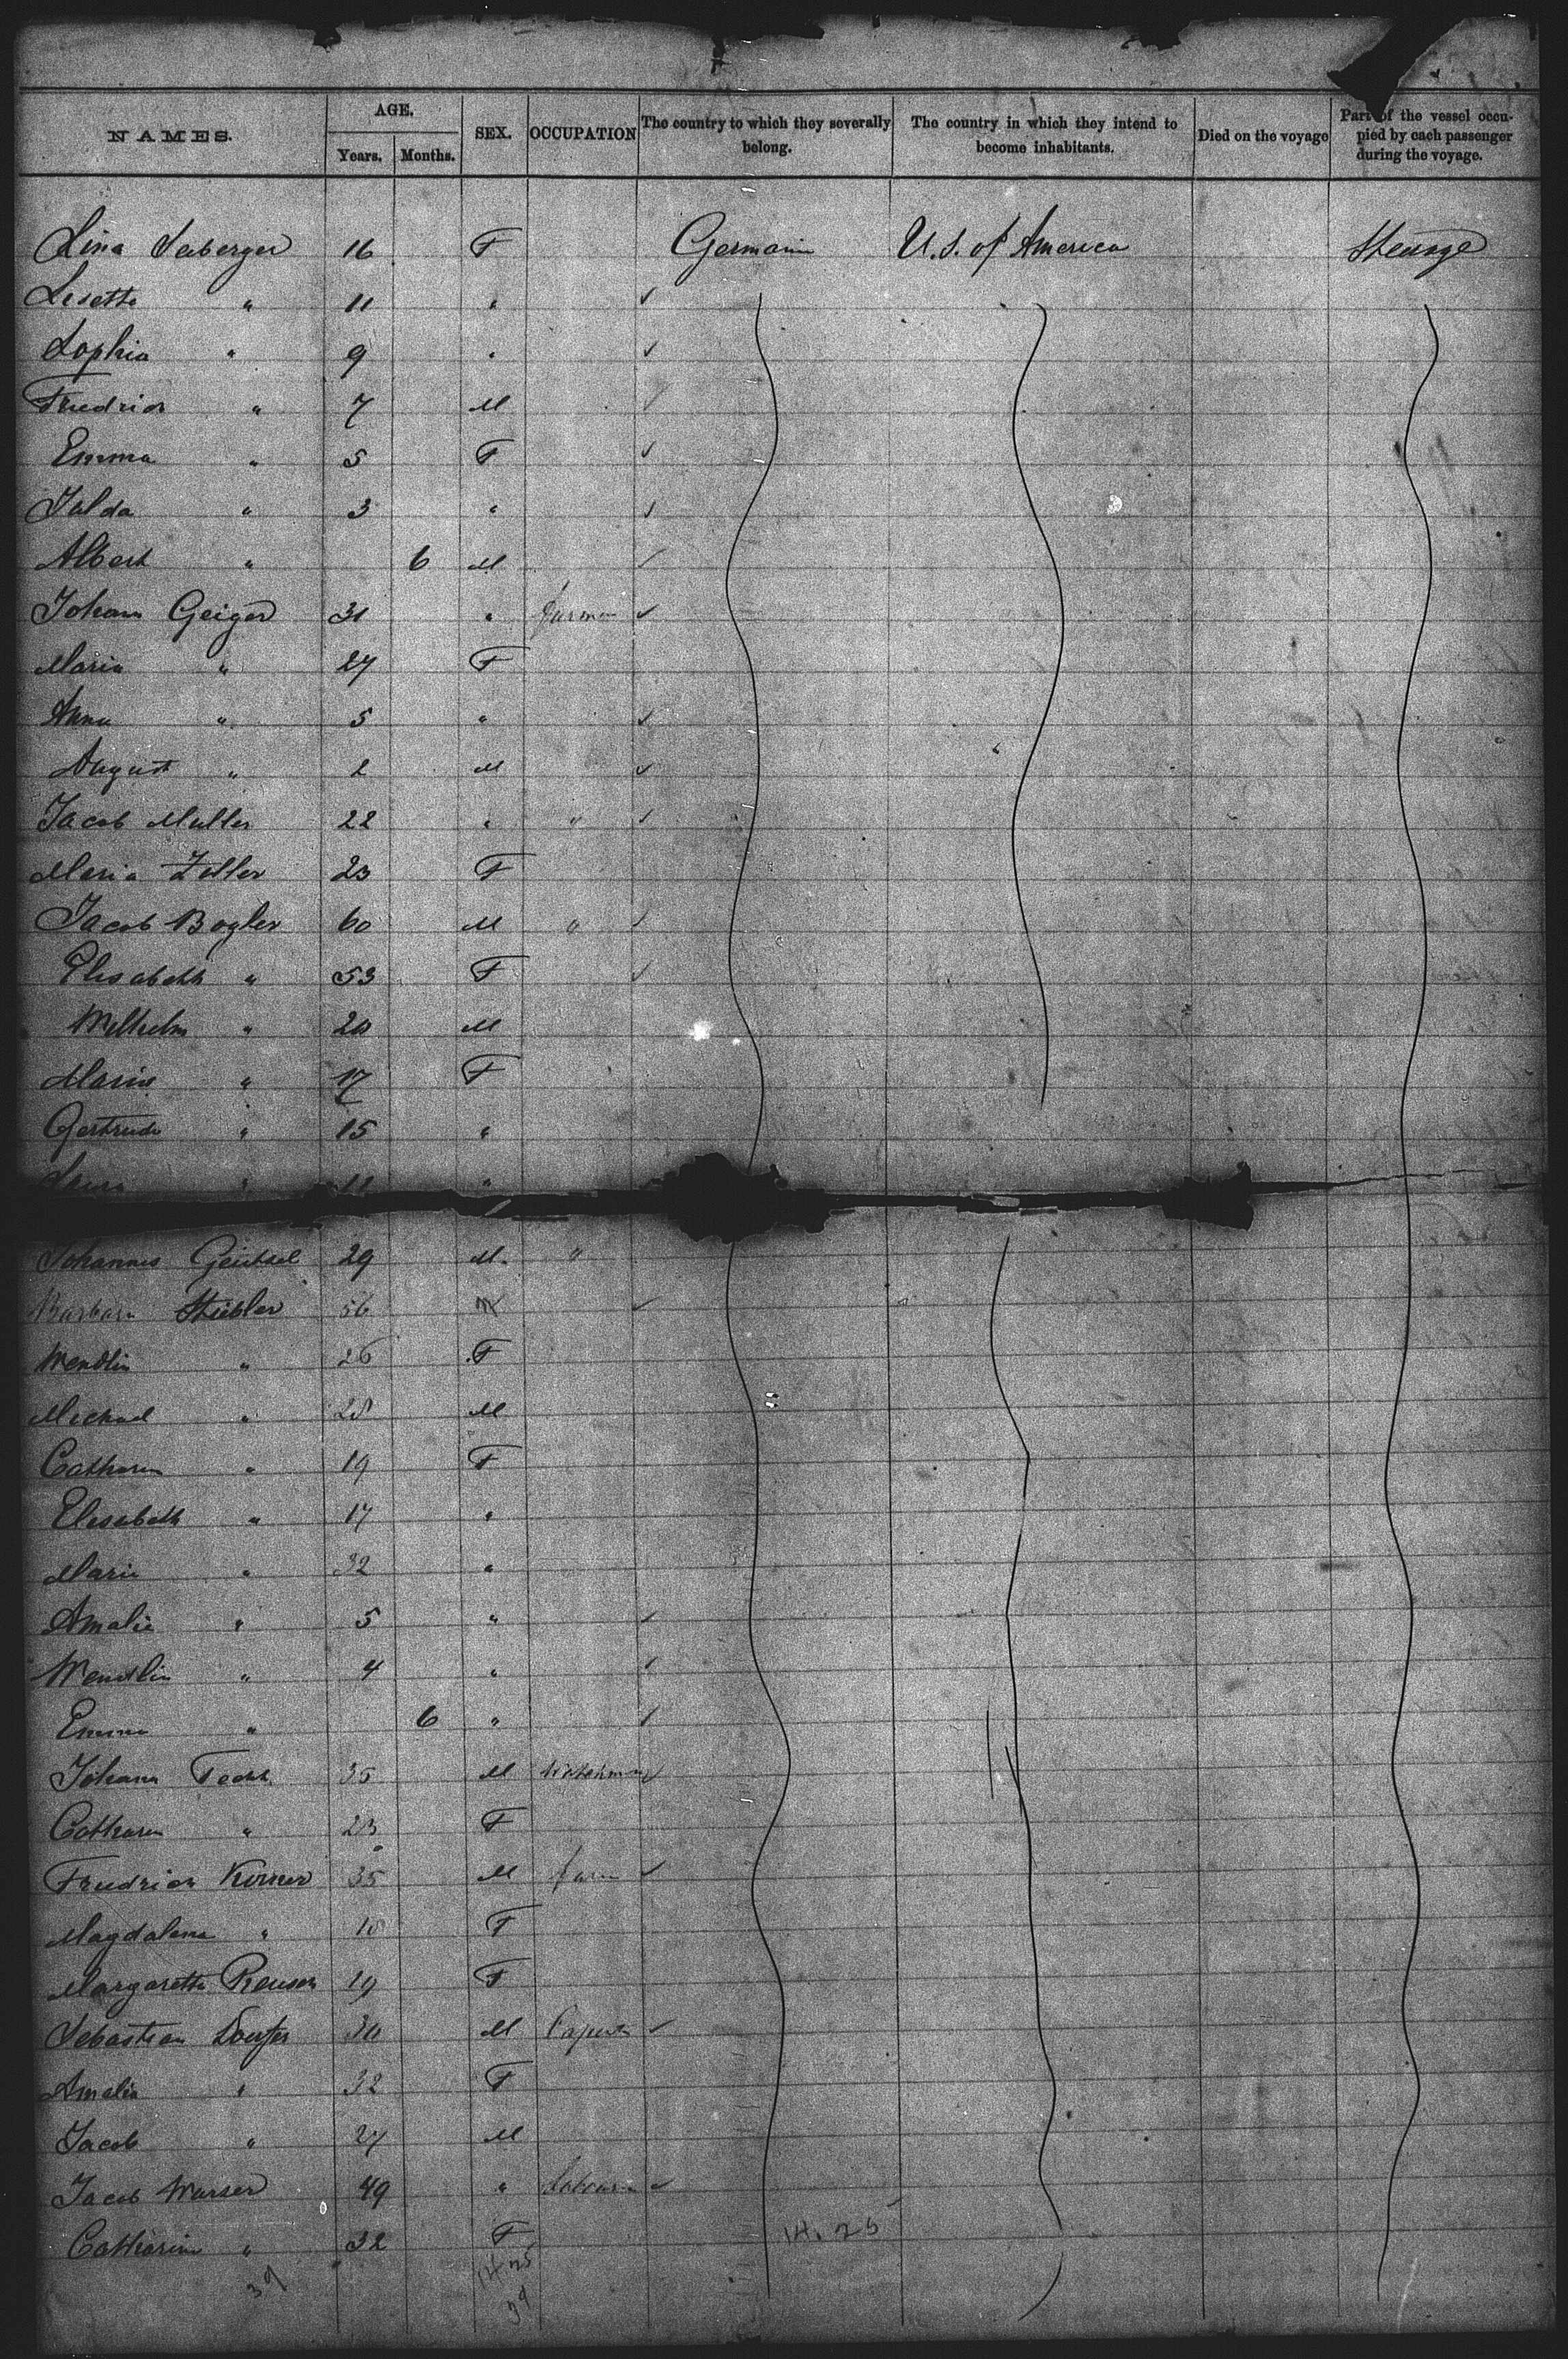 NAMES. AGE. Years. Months. SEX. OCCUPATION The country to which they severally belong. The country in which they intend to become inhabitants. Died on the voyage Part of the vessel occupied by each passenger during the voyage.
Lina Seeberger 16 F Germain U.S. of America Steerage
Lisette " 11 "
Sophia " 9 "
Friedrich " 7 M
Emma " 5 F
Julda " 3 "
Albert " 6 M
Johann Geiger 31 " farmer
Maria " 27 F
Anna " 5 "
August " 2 M
Jacob Muller 22 " "
Maria Zeller 23 F
Jacob Bogler 60 M "
Elisabeth " 53 F
Wilhelm " 20 M
Marie " 17 F
Gertrude " 15 "
" 12 "
Johannes 29 M. "
Barbara Stiebler 56 M
Wendlin " 26 F
Michael " 28 M
Catharin " 19 F
Elisabeth " 17 "
Marie " 32 "
Amalie " 5 "
Wendlin " 4 "
Emma " 6 "
Johann 35 M
Catharin " 23 F
Friedrich Körner 35 M farm
Magdalena " 18 F
Margaretha 19 F
Sebastian 30 M
Amalia " 32 F
Jacob " 27 M
Jacob Warser 49 "
Catharine " 32 F 14.25
39 14 25
39